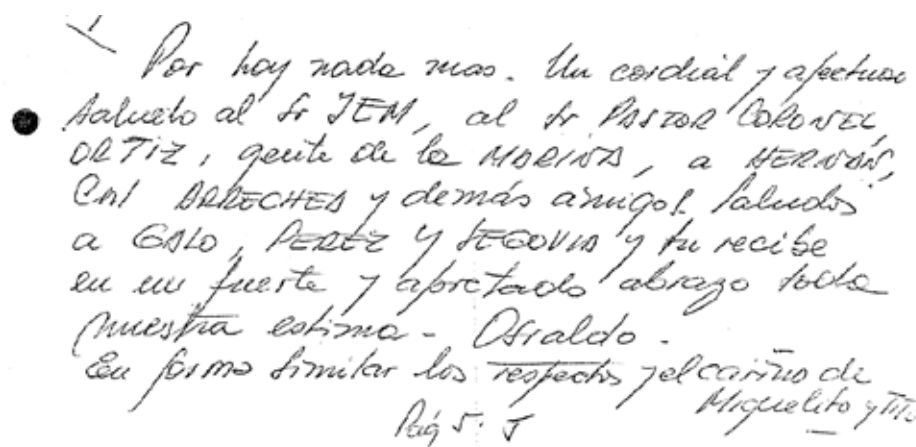 Por hoy nada mas. Un cordial y afectuoso
saludo al Sr JEM, al Sr PASTOR CORONEL,
ORTIZ, gente de la MARINA, a HERNÁN,
Cnl ARRECHEA y demás amigos. Saludos
a GALO, PEREZ Y SEGOVIA y tu recibe
en un fuerte y apretado abrazo toda
nuestra estima - Osvaldo.
En forma similar los respectos y el cariño de
Miguelito y Tito
Pág 5.